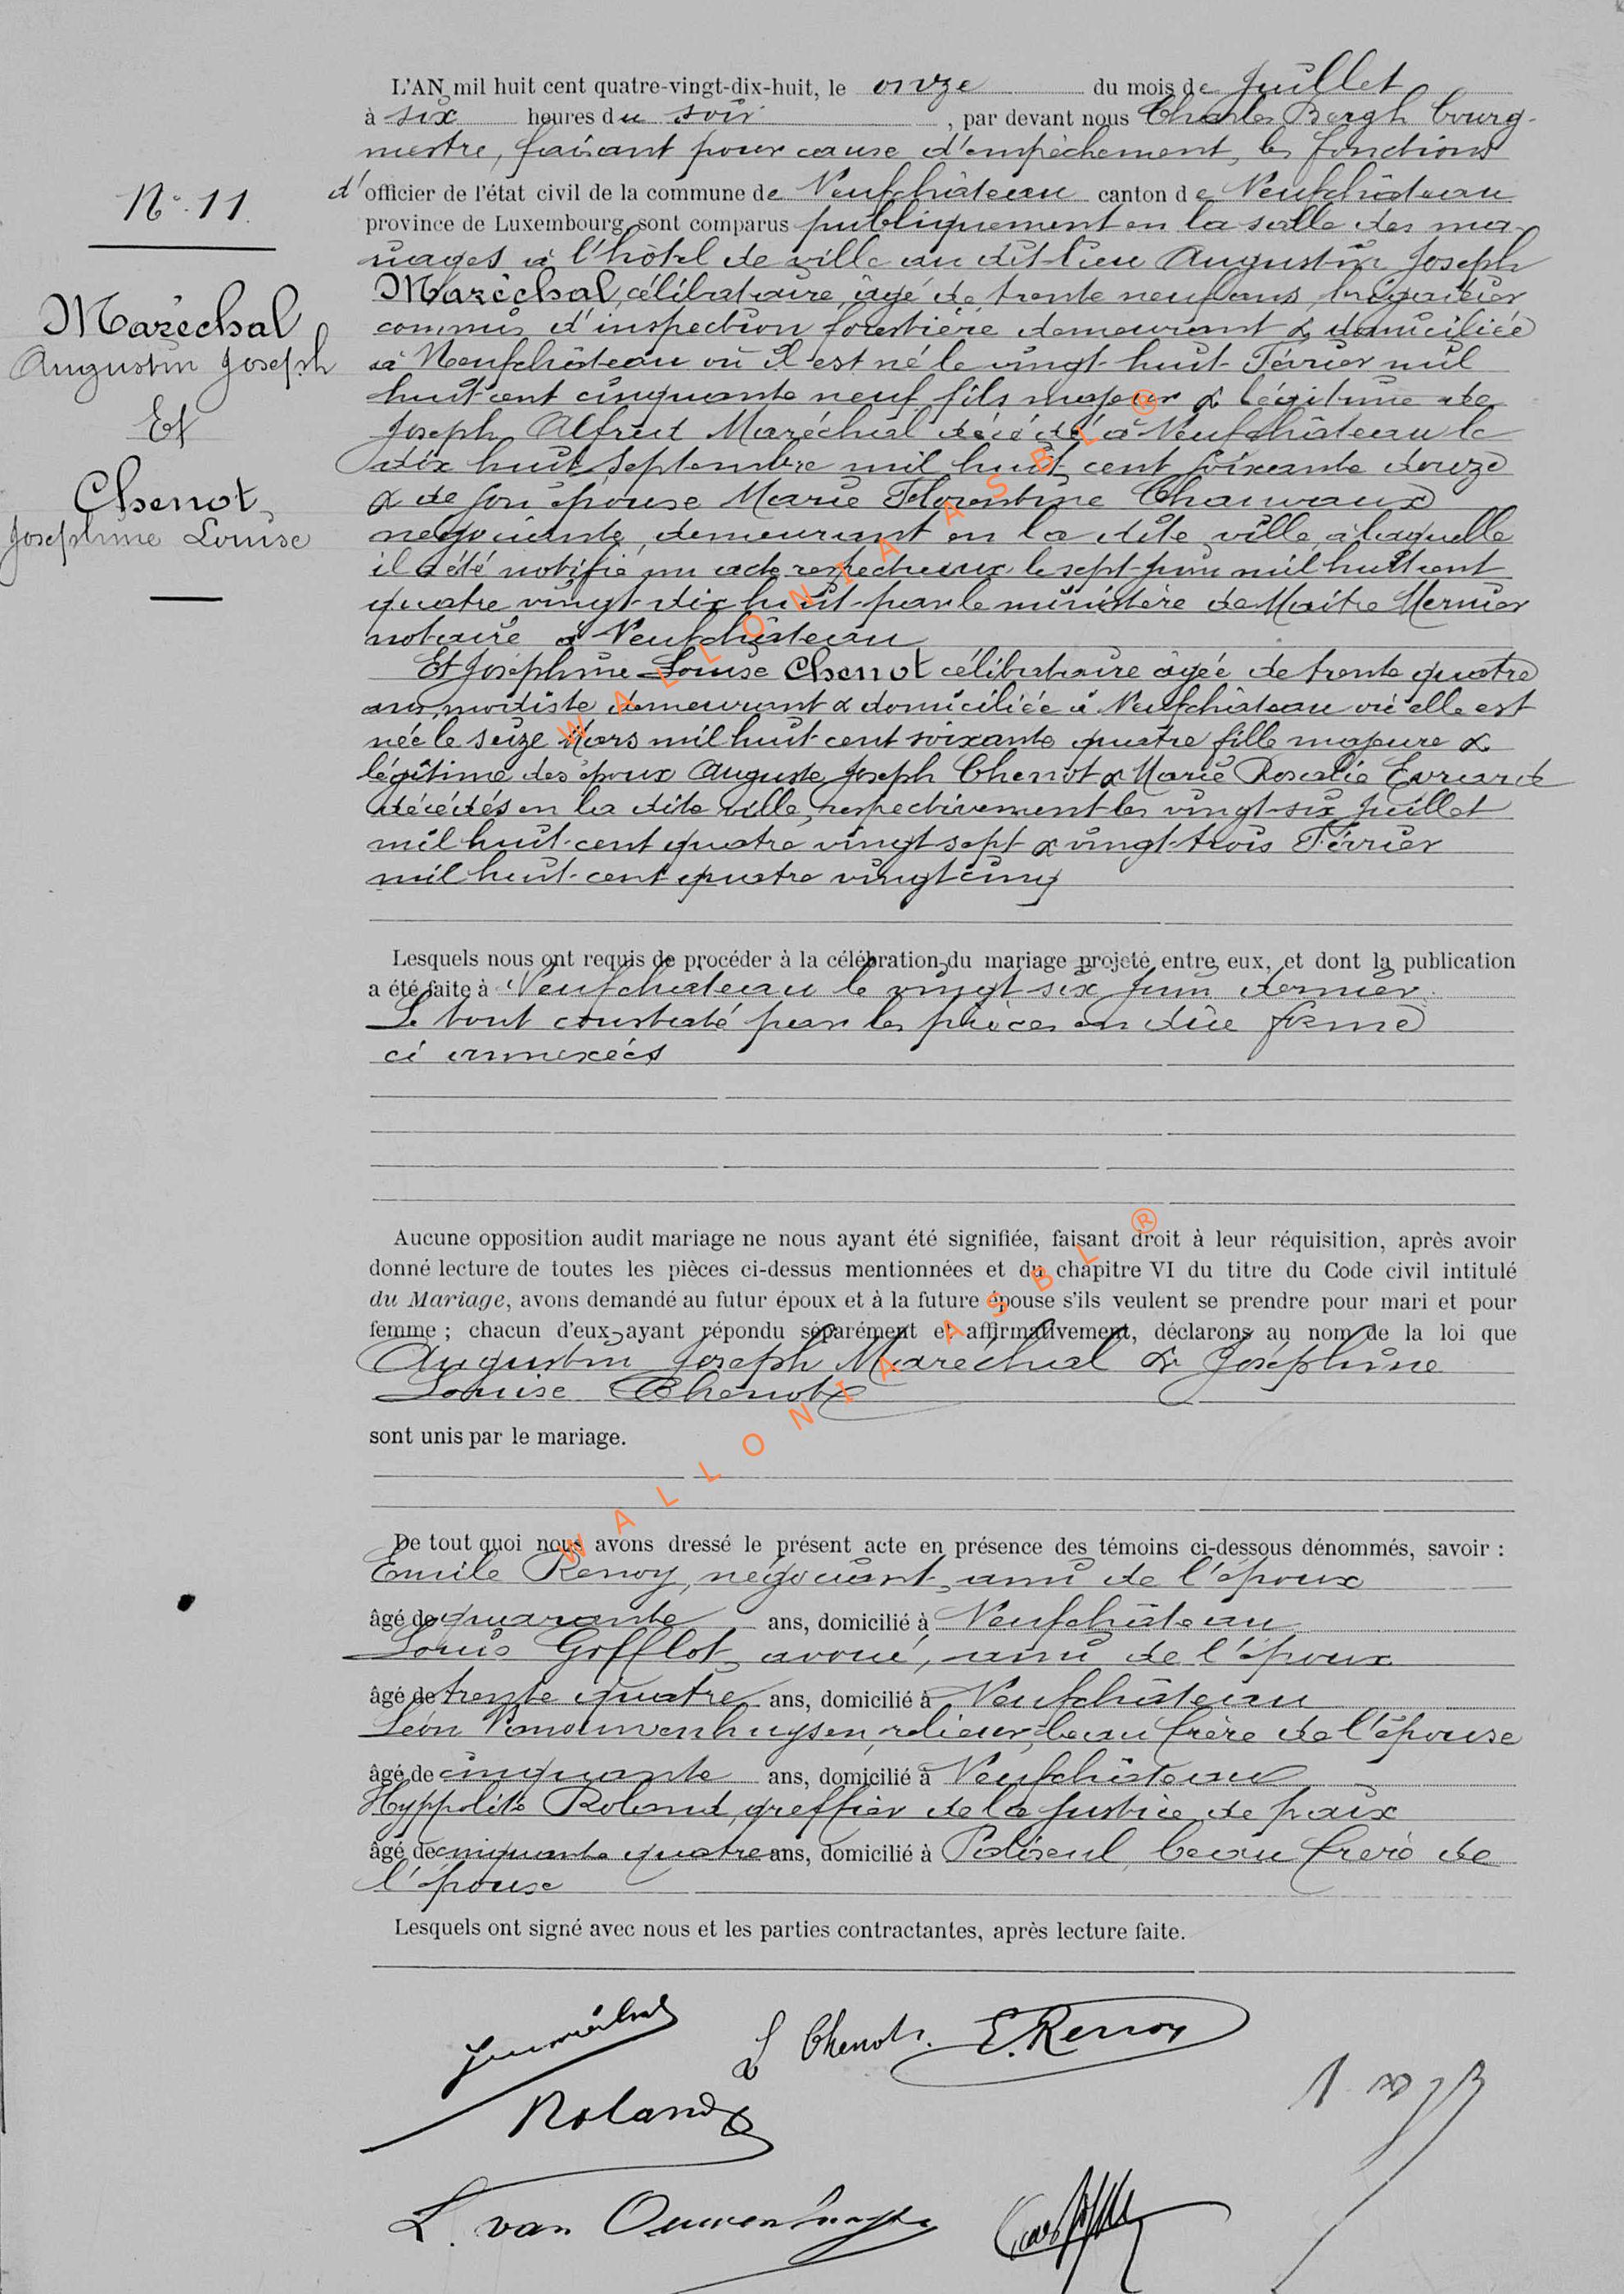 L'AN mil huit cent quatre-vingt-dix-huit, le onze du mois de Juillet
à six heures du soir, par devant nous Charles Bergh bourg-
mestre, faisant pour cause d'empêchement, les fonctions
d'officier de l'état civil de la commune de Neufchâteau canton de Neufchâteau
province de Luxembourg sont comparus publiquement en la salle des ma-
riages à l'hôtel de ville au dit lieu Augustin Joseph
Maréchal, célibataire, âgé de trente neuf ans, brigadier
commis d'inspection forestière demeurant & domiciliée
à Neufchâteau où il est né le vingt-huit Février mil
huit cent cinquante neuf fils majeur & légitime de
Joseph Alfred Maréchal décédé à Neufchâteau le
dix huit Septembre mil huit cent soixante douze
& de son épouse Marie Florentine Chauvaux
négociante, demeurant en la dite ville, à laquelle
il a été notifié un acte respectueux le sept Juin mil huit cent
quatre vingt-dix huit par le ministère de Maître Mernier
notaire à Neufchâteau
Et Joséphine Louise Chenot célibataire âgée de trente quatre
ans, modiste demeurant & domiciliée à Neufchâteau où elle est
née le seize Mars mil huit cent soixante quatre fille majeure &
légitime des époux Auguste Joseph Chenot & Marie Rosalie Evrard
décédés en la dite ville, respectivement les vingt-six Juillet
mil huit-cent quatre vingt sept & vingt-trois Février
mil huit-cent quatre vingt cinq
N° 11
Maréchal
Augustin Joseph
Et
Chenot
Joséphine Louise
Lesquels nous ont requis de procéder à la célébration du mariage projeté entre eux, et dont la publication
a été faite à Neufchâteau le vingt six Juin dernier.
Le tout constaté par les pièces en due forme
ci annexées
Aucune opposition audit mariage ne nous ayant été signifiée, faisant droit à leur réquisition, après avoir
donné lecture de toutes les pièces ci-dessus mentionnées et du chapitre VI du titre du Code civil intitulé
du Mariage, avons demandé au futur époux et à la future épouse s'ils veulent se prendre pour mari et pour
femme ; chacun d'eux ayant répondu séparément et affirmativement, déclarons au nom de la loi que
Augustin Joseph Maréchal & Joséphine
Louise Chenot
sont unis par le mariage.
De tout quoi nous avons dressé le présent acte en présence des témoins ci-dessous dénommés, savoir :
Emile Renoy, négociant, ami de l'époux
âgé de quarante ans, domicilié à Neufchâteau
Louis Gofflot, avoué, ami de l'époux
âgé de trente quatre ans, domicilié à Neufchâteau
Léon Vanouwenhuysen, relieur, beau frère de l'épouse
âgé de cinquante ans, domicilié à Neufchâteau
Hyppolite Roland, greffier de la Justice de paix
âgé de cinquante quatre ans, domicilié à Paliseul, beau frère de
l'épouse
Lesquels ont signé avec nous et les parties contractantes, après lecture faite.
L Chenot. E. Renoy
Roland
L. van Ouwenhuysen
WALLONIA ASBL ®
WALLONIA ASBL ®